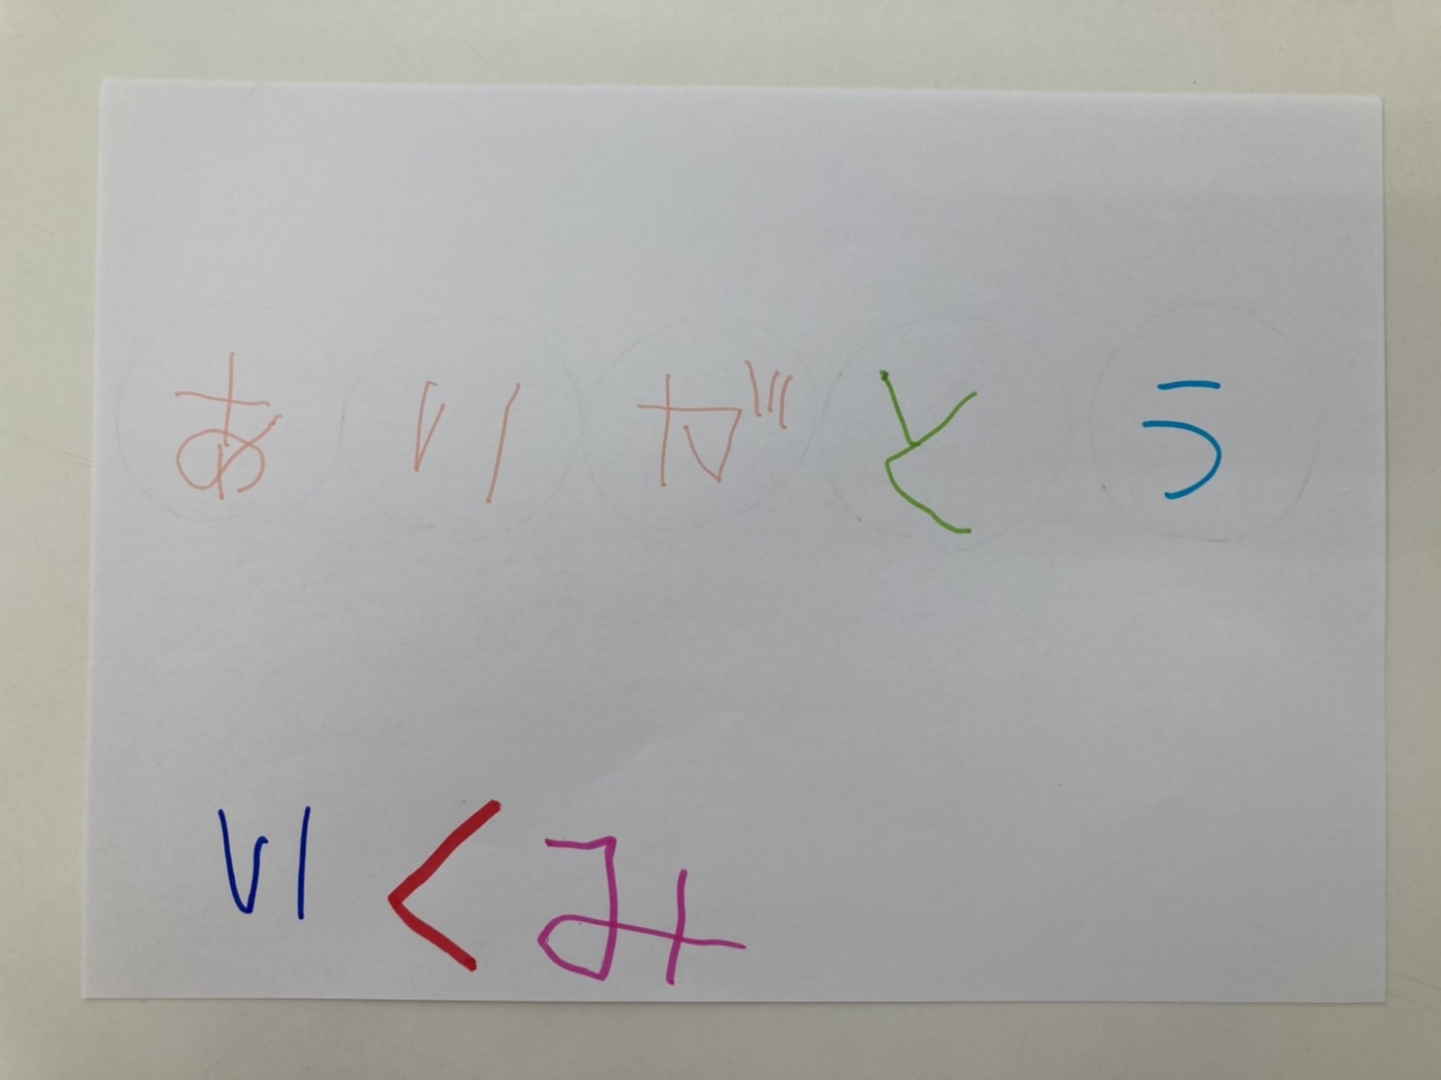 ありがとう
いくみ